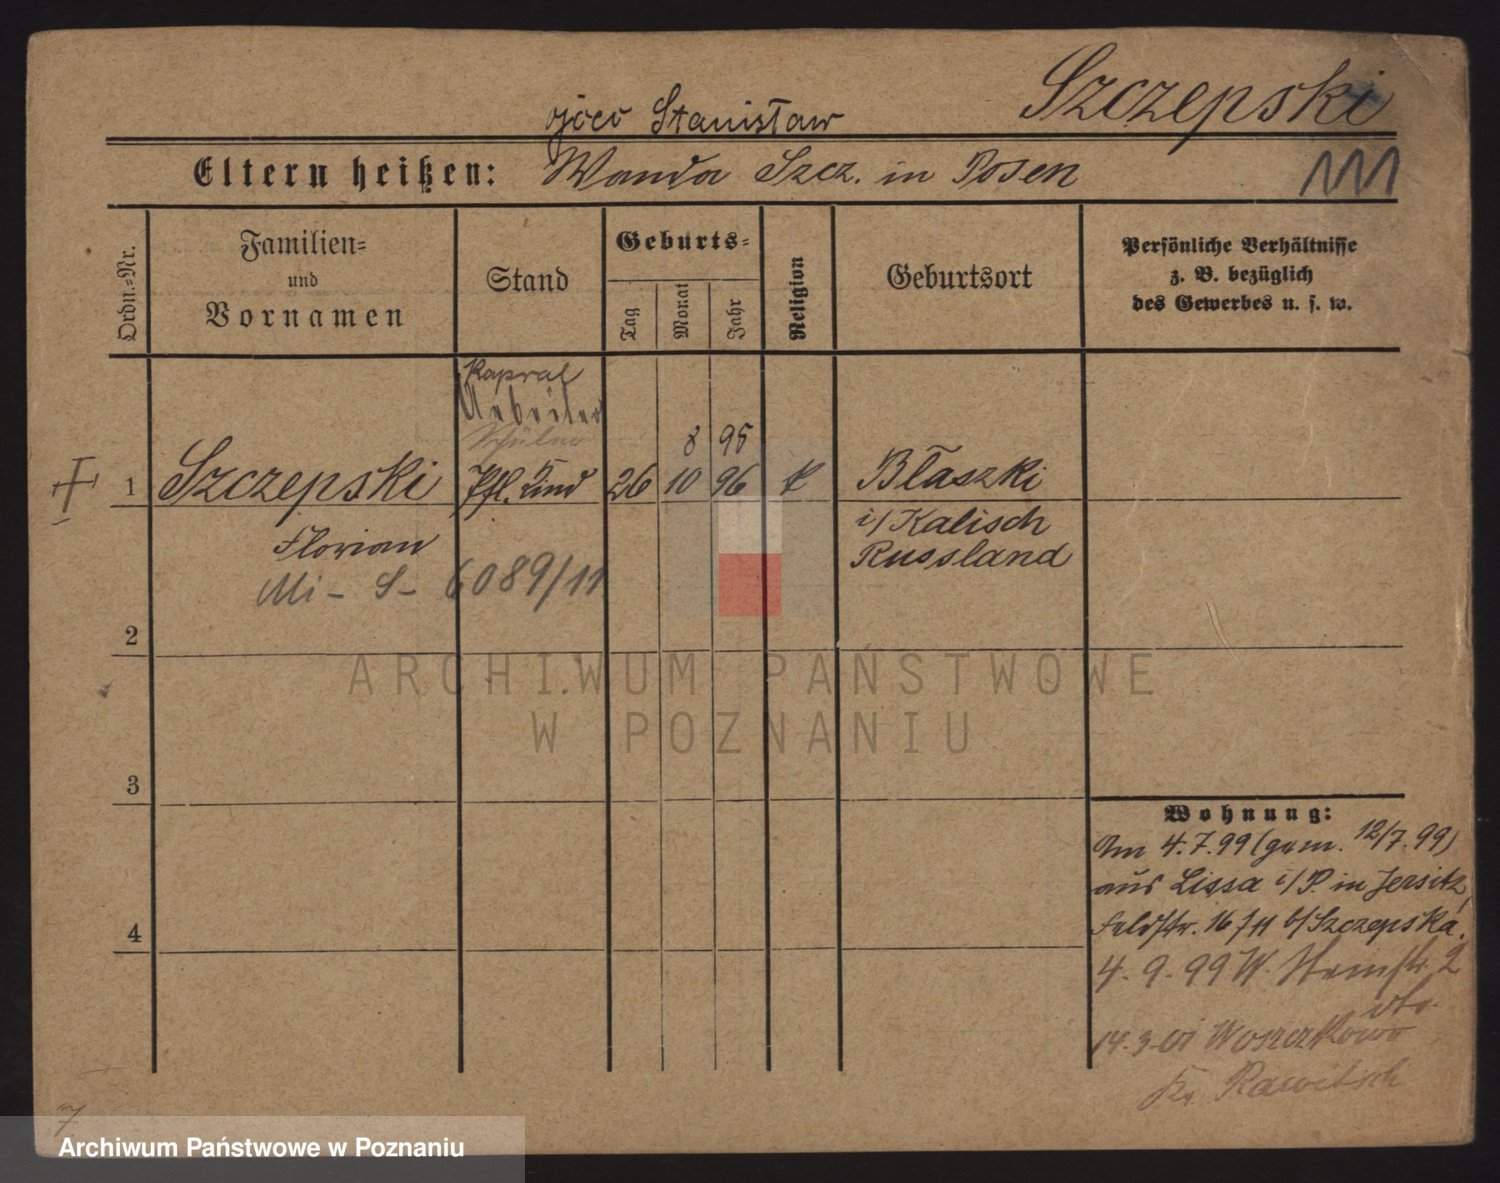 Szczepski
ojciec Stanisław
Eltern heißen: Wanda Szcz. in Posen
Ordn.-Nr.
Familien-
und
Vornamen
Stand
Geburts-
Tag
Monat
Jahr
Religion
Geburtsort
Persönliche Verhältnisse
z. B. bezüglich
des Gewerbes u. s. w.
Kapral
Arbeiter
Schüler
8 95
1 Szczepski Pfl. Kind 26 10 96 k Błaszki
Florian
i/Kalisch
Russland
Mi - S - 6089/11
2
3
4
Wohnung:
Am 4.7.99 (gem. 12/7.99)
aus Lissa i/P. in Jersitz,
Feldstr. 16/11 b/Szczepska.
4.9.99 W. 2
dto.
14.3.01
Kr. Rawitsch
7
ARCHIWUM PAŃSTWOWE
W POZNANIU
Archiwum Państwowe w Poznaniu